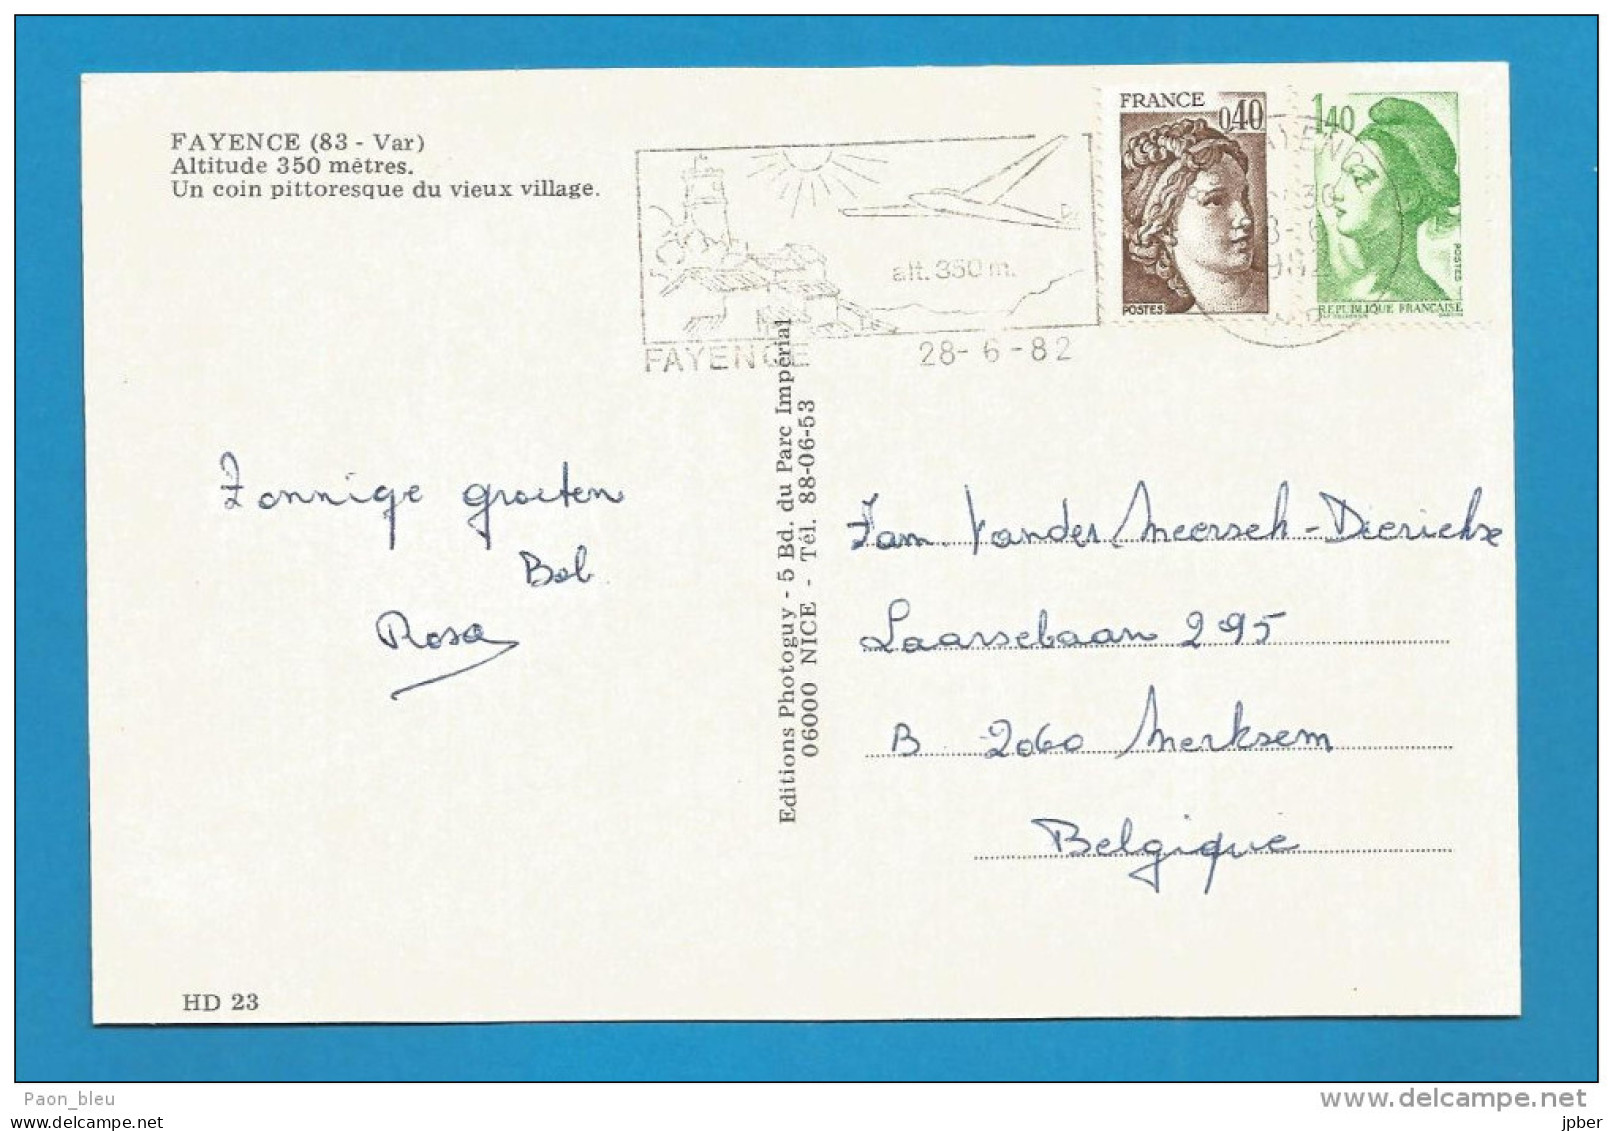 FAYENCE (83 - Var)
Altitude 350 mètres.
Un coin pittoresque du vieux village.
alt. 350 m.
FAYENCE
28-6-82
FRANCE
0,40
POSTES
1,40
POSTES
REPUBLIQUE FRANÇAISE
Zonnige groeten
Bob
Rosa
Editions Photoguy - 5 Bd. du Parc Impérial
06000 NICE - Tél. 88-06-53
Fam. Vander Meersch-Dierickx
Laarsebaan 295
B 2060 Merksem
Belgique
HD 23
Paon_bleu
www.delcampe.net
www.delcampe.net
jpber